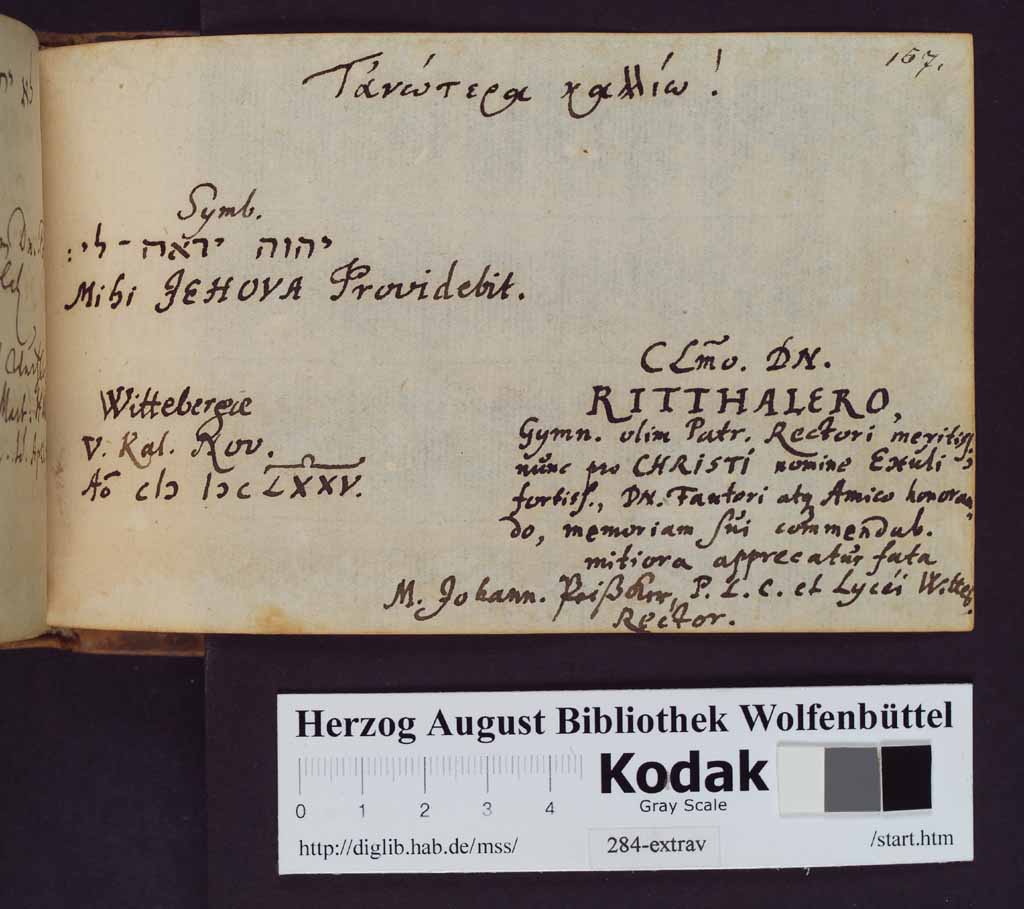 157.
Τἀνώτερα καλλίω!
Symb.
יהוה יראה-לי:
Mihi JEHOVA Providebit.
Wittebergæ
V. Kal. Nov.
Aō cIɔ Iɔc LXXV.
CLm̃o. DN.
RITTHALERO,
Gymn. olim Patr. Rectori meritiss.
nunc pro CHRISTI nomine Exuli
fortiss., DN. Fautori atq Amico honoran-
do, memoriam sui commendab.
mitiora apprecatus fata
M. Johann. Peißker, P. L. C. et Lycei Witteb.
Rector.
Herzog August Bibliothek Wolfenbüttel
0 1 2 3 4
Kodak
Gray Scale
http://diglib.hab.de/mss/
284-extrav
/start.htm